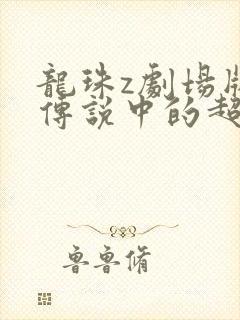 龍珠z劇場版
傳說中的超
魯魯脩